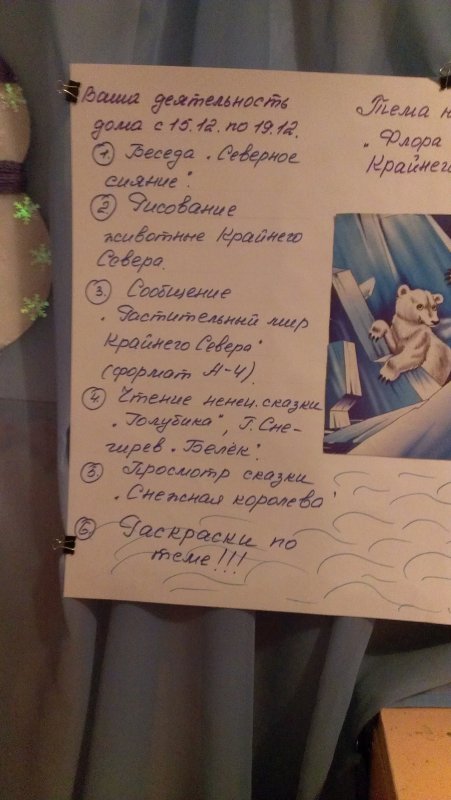 Ваша деятельность
дома с 15.12. по 19.12.
1. Беседа „Северное
сияние".
2. Рисование
животные Крайнего
Севера.
3. Сообщение
„Растительный мир
Крайнего Севера"
(формат А-4).
4. Чтение ненец. сказки
„Голубика", Г. Сне-
гирев „Белёк".
5. Просмотр сказки
„Снежная королева"
6. Раскраски по
теме!!!
Тема н
„Флора
Крайнего